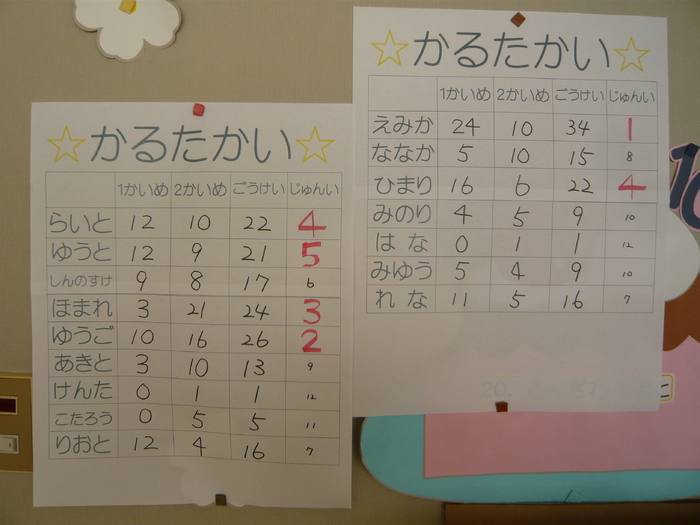 ☆かるたかい☆
1かいめ 2かいめ ごうけい じゅんい
らいと 12 10 22 4
ゆうと 12 9 21 5
しんのすけ 9 8 17 6
ほまれ 3 21 24 3
ゆうご 10 16 26 2
あきと 3 10 13 9
けんた 0 1 1 12
こたろう 0 5 5 11
りおと 12 4 16 7
☆かるたかい☆
1かいめ 2かいめ ごうけい じゅんい
えみか 24 10 34 1
ななか 5 10 15 8
ひまり 16 6 22 4
みのり 4 5 9 10
はな 0 1 1 12
みゆう 5 4 9 10
れな 11 5 16 7